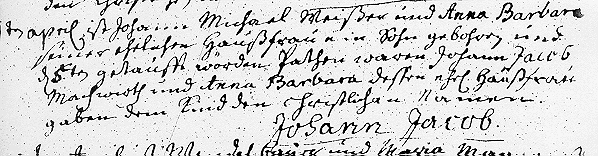 1ten April ist Johann Michael Weißer und Anna Barbara
seiner ehelichen Haußfrau ein Sohn gebohren und
d 5ten getaufft worden. Pathen waren Johann Jacob
Machwirth und Anna Barbara dessen ehel Haußfrau
gaben dem Kind den Christlichen Namen.
Johann Jacob.
und Maria